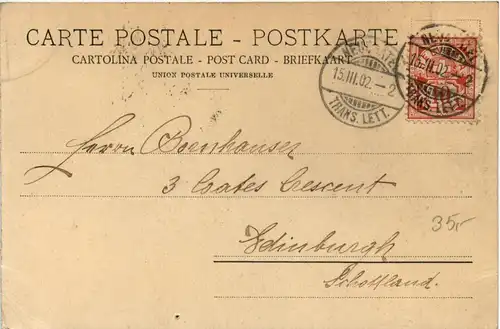 CARTE POSTALE - POSTKARTE
CARTOLINA POSTALE - POST CARD - BRIEFKAART
UNION POSTALE UNIVERSELLE
15.III.02.–2
TRANS. LETT.
Herrn Boenhauser
3 Coates Cescent
Edinburgh
Schottland.
35,-